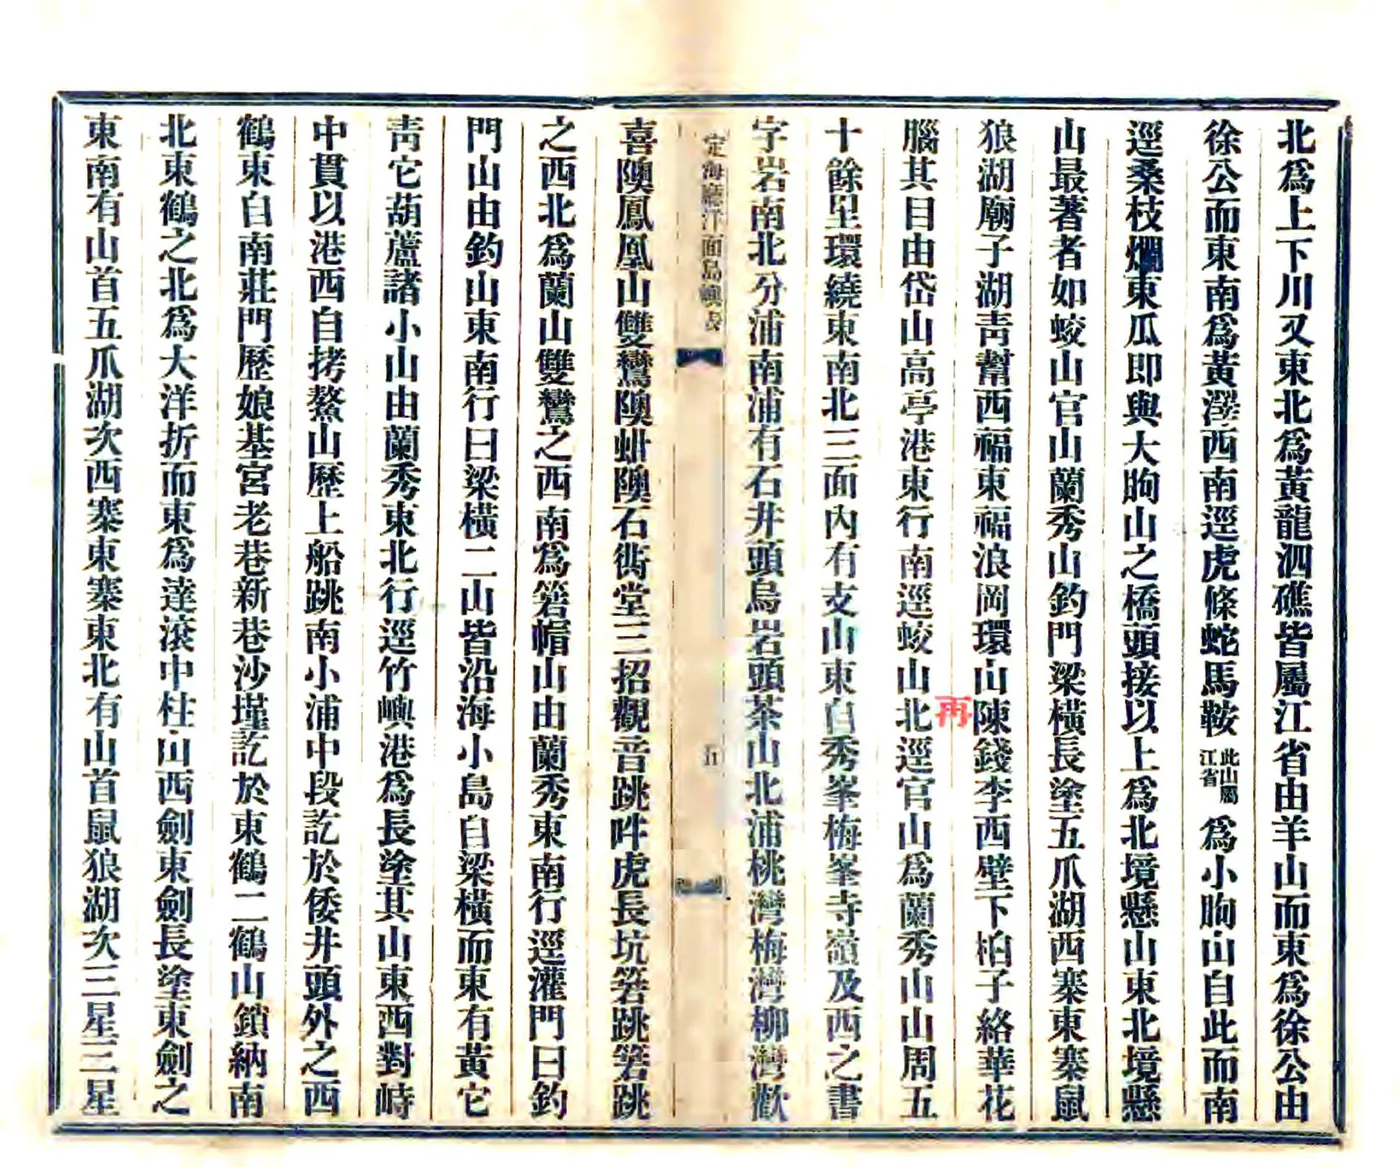 北爲上下川又東北爲黃龍泗礁皆屬江省由羊山而東爲徐公由
徐公而東南爲黃澤西南逕虎條蛇馬鞍此山屬江省爲小朐山自此而南
逕桑枝爛東瓜即與大朐山之橋頭接以上爲北境懸山東北境懸
山最著者如蛟山官山蘭秀山釣門梁橫長塗五爪湖西寨東寨鼠
狼湖廟子湖靑幫西福東福浪岡環山陳錢李西壁下柏子絡華花
腦其目由岱山高亭港東行南逕蛟山北逕官山爲蘭秀山山周五
十餘里環繞東南北三面內有支山東自秀峯梅峯寺嶺及西之書
字岩南北分浦南浦有石井頭烏岩頭茶山北浦桃灣梅灣柳灣歡
定海廳洋面島嶼表
五
喜隩鳳凰山雙鸞隩蚶隩石衖堂三招觀音跳吽虎長坑箬跳箬跳
之西北爲蘭山雙鸞之西南爲箬帽山由蘭秀東南行逕灌門曰釣
門山由釣山東南行曰梁橫二山皆沿海小島自梁橫而東有黃它
靑它葫蘆諸小山由蘭秀東北行逕竹嶼港爲長塗其山東西對峙
中貫以港西自拷鰲山歷上船跳南小浦中段訖於倭井頭外之西
鶴東自南莊門歷娘基宮老巷新巷沙墐訖於東鶴二鶴山鎖納南
北東鶴之北爲大洋折而東爲達滾中柱山西劍東劍長塗東劍之
東南有山首五爪湖次西寨東寨東北有山首鼠狼湖次三星三星
再